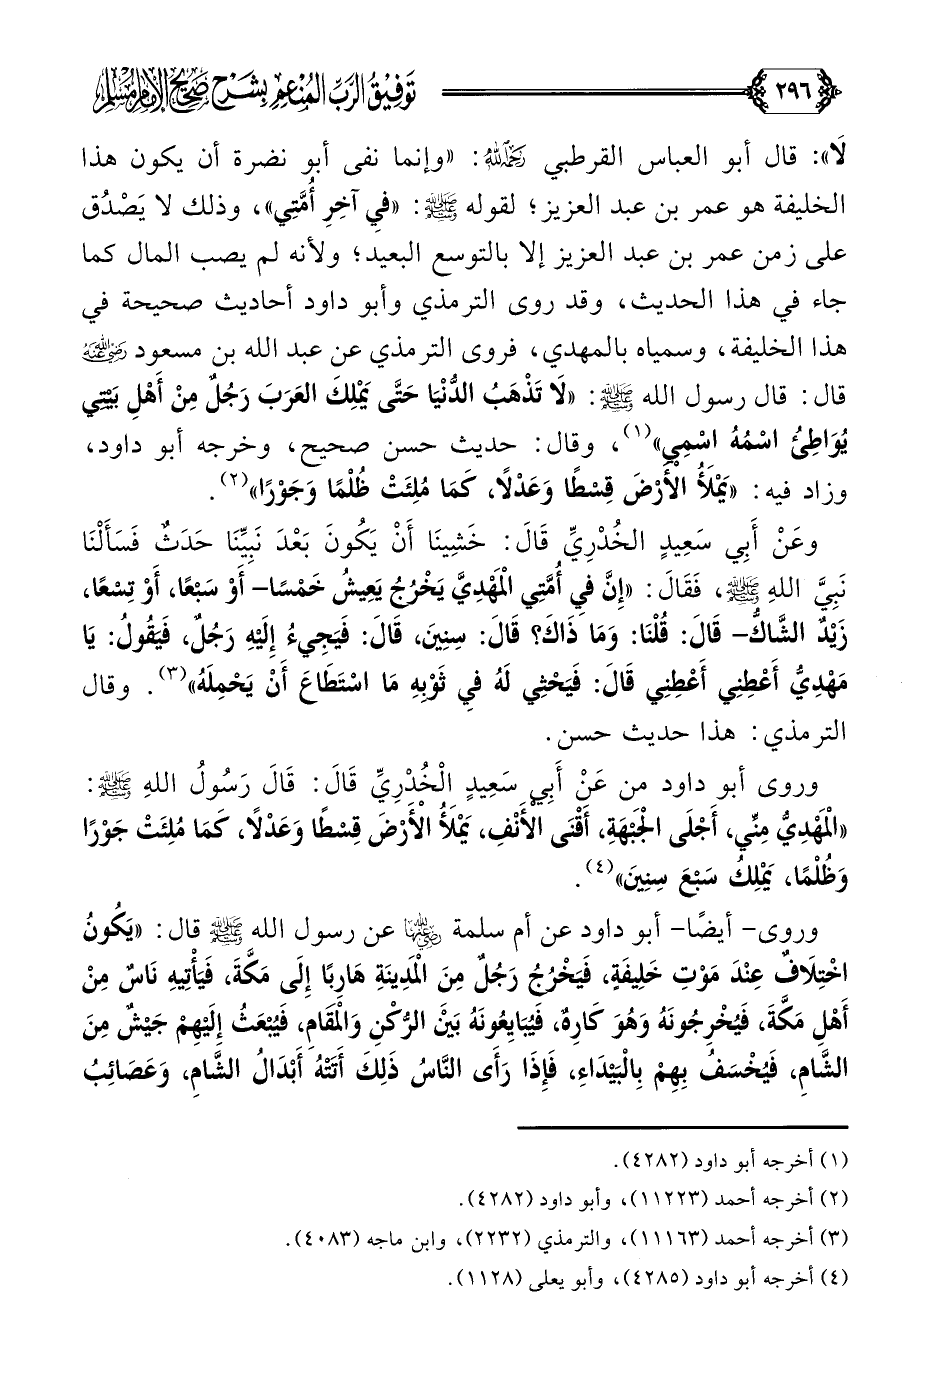 ٢٩٦ توفيق الرب المنعم بشرح صحيح الإمام مسلم
لَا»: قال أبو العباس القرطبي رَحِمَهُ اللهُ: «وإنما نفى أبو نضرة أن يكون هذا
الخليفة هو عمر بن عبد العزيز؛ لقوله ﷺ: «فِي آخِرِ أُمَّتِي»، وذلك لا يَصْدُق
على زمن عمر بن عبد العزيز إلا بالتوسع البعيد؛ ولأنه لم يصب المال كما
جاء في هذا الحديث، وقد روى الترمذي وأبو داود أحاديث صحيحة في
هذا الخليفة، وسمياه بالمهدي، فروى الترمذي عن عبد الله بن مسعود رَضِيَ اللهُ عَنْهُ
قال: قال رسول الله ﷺ: «لَا تَذْهَبُ الدُّنْيَا حَتَّى يَمْلِكَ العَرَبَ رَجُلٌ مِنْ أَهْلِ بَيْتِي
يُوَاطِئُ اسْمُهُ اسْمِي»(١)، وقال: حديث حسن صحيح، وخرجه أبو داود،
وزاد فيه: «يَمْلَأُ الْأَرْضَ قِسْطًا وَعَدْلًا، كَمَا مُلِئَتْ ظُلْمًا وَجَوْرًا»(٢).
وَعَنْ أَبِي سَعِيدٍ الخُدْرِيِّ قَالَ: خَشِينَا أَنْ يَكُونَ بَعْدَ نَبِيِّنَا حَدَثٌ فَسَأَلْنَا
نَبِيَّ اللهِ ﷺ، فَقَالَ: «إِنَّ فِي أُمَّتِي الْمَهْدِيَّ يَخْرُجُ يَعِيشُ خَمْسًا- أَوْ سَبْعًا، أَوْ تِسْعًا،
زَيْدٌ الشَّاكُّ- قَالَ: قُلْنَا: وَمَا ذَاكَ؟ قَالَ: سِنِينَ، قَالَ: فَيَجِيءُ إِلَيْهِ رَجُلٌ، فَيَقُولُ: يَا
مَهْدِيُّ أَعْطِنِي أَعْطِنِي قَالَ: فَيَحْثِي لَهُ فِي ثَوْبِهِ مَا اسْتَطَاعَ أَنْ يَحْمِلَهُ»(٣). وقال
الترمذي: هذا حديث حسن.
وروى أبو داود من عَنْ أَبِي سَعِيدٍ الْخُدْرِيِّ قَالَ: قَالَ رَسُولُ اللهِ ﷺ:
«الْمَهْدِيُّ مِنِّي، أَجْلَى الْجَبْهَةِ، أَقْنَى الْأَنْفِ، يَمْلَأُ الْأَرْضَ قِسْطًا وَعَدْلًا، كَمَا مُلِئَتْ جَوْرًا
وَظُلْمًا، يَمْلِكُ سَبْعَ سِنِينَ»(٤).
وروى- أيضًا- أبو داود عن أم سلمة رَضِيَ اللهُ عَنْهَا عن رسول الله ﷺ قال: «يَكُونُ
اخْتِلَافٌ عِنْدَ مَوْتِ خَلِيفَةٍ، فَيَخْرُجُ رَجُلٌ مِنَ الْمَدِينَةِ هَارِبًا إِلَى مَكَّةَ، فَيَأْتِيهِ نَاسٌ مِنْ
أَهْلِ مَكَّةَ، فَيُخْرِجُونَهُ وَهُوَ كَارِهٌ، فَيُبَايِعُونَهُ بَيْنَ الرُّكْنِ وَالْمَقَامِ، فَيُبْعَثُ إِلَيْهِمْ جَيْشٌ مِنَ
الشَّامِ، فَيُخْسَفُ بِهِمْ بِالْبَيْدَاءِ، فَإِذَا رَأَى النَّاسُ ذَلِكَ أَتَتْهُ أَبْدَالُ الشَّامِ، وَعَصَائِبُ
(١) أخرجه أبو داود (٤٢٨٢).
(٢) أخرجه أحمد (١١٢٢٣)، وأبو داود (٤٢٨٢).
(٣) أخرجه أحمد (١١١٦٣)، والترمذي (٢٢٣٢)، وابن ماجه (٤٠٨٣).
(٤) أخرجه أبو داود (٤٢٨٥)، وأبو يعلى (١١٢٨).